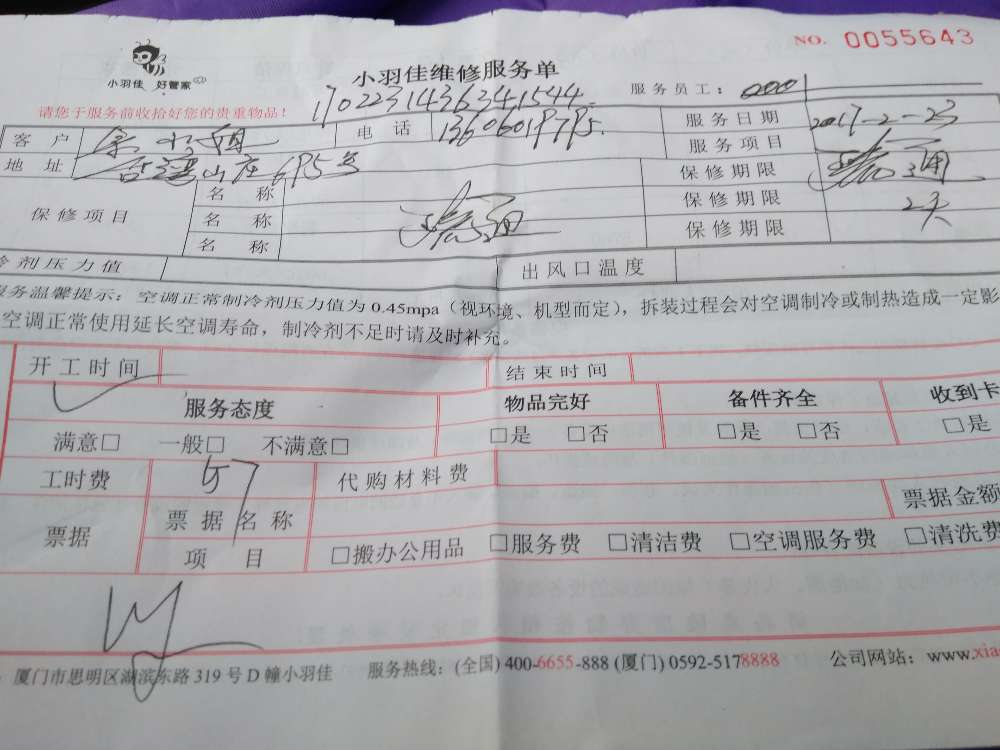 NO. 0055643
小羽佳 好管家
小羽佳维修服务单
请您于服务前收拾好您的贵重物品!
1702231436341544
服务员工:
客户
电话 13606019795
服务日期 2017-2-23
地址 山庄695号
服务项目
保修项目
名称
保修期限
名称
保修期限 2天
名称
保修期限
冷剂压力值
出风口温度
服务温馨提示:空调正常制冷剂压力值为0.45mpa(视环境、机型而定),拆装过程会对空调制冷或制热造成一定影
空调正常使用延长空调寿命,制冷剂不足时请及时补充。
开工时间
结束时间
服务态度 物品完好 备件齐全 收到卡
满意□ 一般□ 不满意□ □是 □否 □是 □否 □是
工时费 57 代购材料费
票据 票据名称 票据金额
项目 □搬办公用品 □服务费 □清洁费 □空调服务费 □清洗费
厦门市思明区湖滨东路319号D幢小羽佳 服务热线:(全国)400-6655-888 (厦门)0592-5178888 公司网站:www.xia